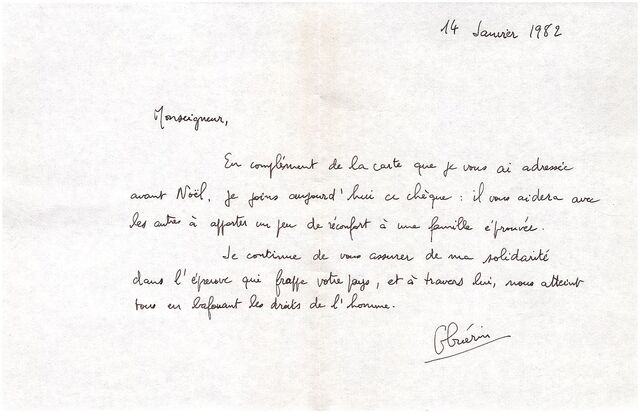 14 Janvier 1982
Monseigneur,
En complément de la carte que je vous ai adressée
avant Noël, je joins aujourd'hui ce chèque : il vous aidera avec
les autres à apporter un peu de réconfort à une famille éprouvée.
Je continue de vous assurer de ma solidarité
dans l'épreuve qui frappe votre pays, et à travers lui, nous atteint
tous en bafouant les droits de l'homme.